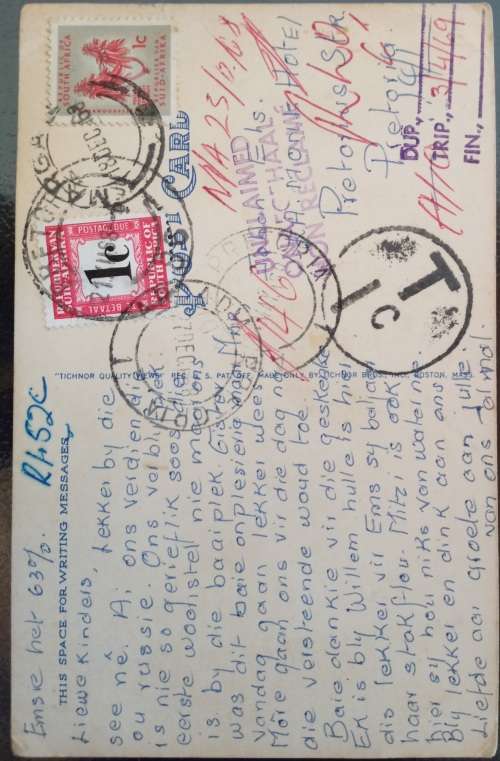 Emsie het 63%.
R1.52c
THIS SPACE FOR WRITING MESSAGES
POST CARD
Liewe Kinders, Lekker by die
see nê. Ai, ons verdien di
ou russie. Ons verblyf
is nie so gerieflik soos die
eerste woonstell nie maar ons
is by die baaiplek. Gister
was dit baie onplesierig maar
vandag gaan lekker wees
Môre gaan ons vir die dag na
die versteende woud toe.
Baie dankie vir die geskenke
Ek is bly Willem hulle is hier
dis lekker vir Ems sy baljaar
haar stokflou. Mitzi is ook
hier sy hou niks van water nie
Bly lekker en dink aan ons
Liefde aan groete aan julle
van ons almal.
"TICHNOR QUALITY VIEWS" REG. U. S. PAT. OFF. MADE ONLY BY TICHNOR BROS., INC., BOSTON, MASS.
REPUBLIC OF SOUTH AFRICA
1c
REPUBLIEK VAN SUID-AFRIKA
POSTAGE DUE
REPUBLIEK VAN SUID-AFRIKA
1c
REPUBLIC OF SOUTH AFRICA
TE BETAAL
MARGATE
PRETORIA
DEC
T
1c
N/A 23/12/68
UNCLAIMED
ONAFGEHAAL
Hotel
Pretoriusstr
Pretoria
DUP.,
TRIP., 3/4/69
FIN.,